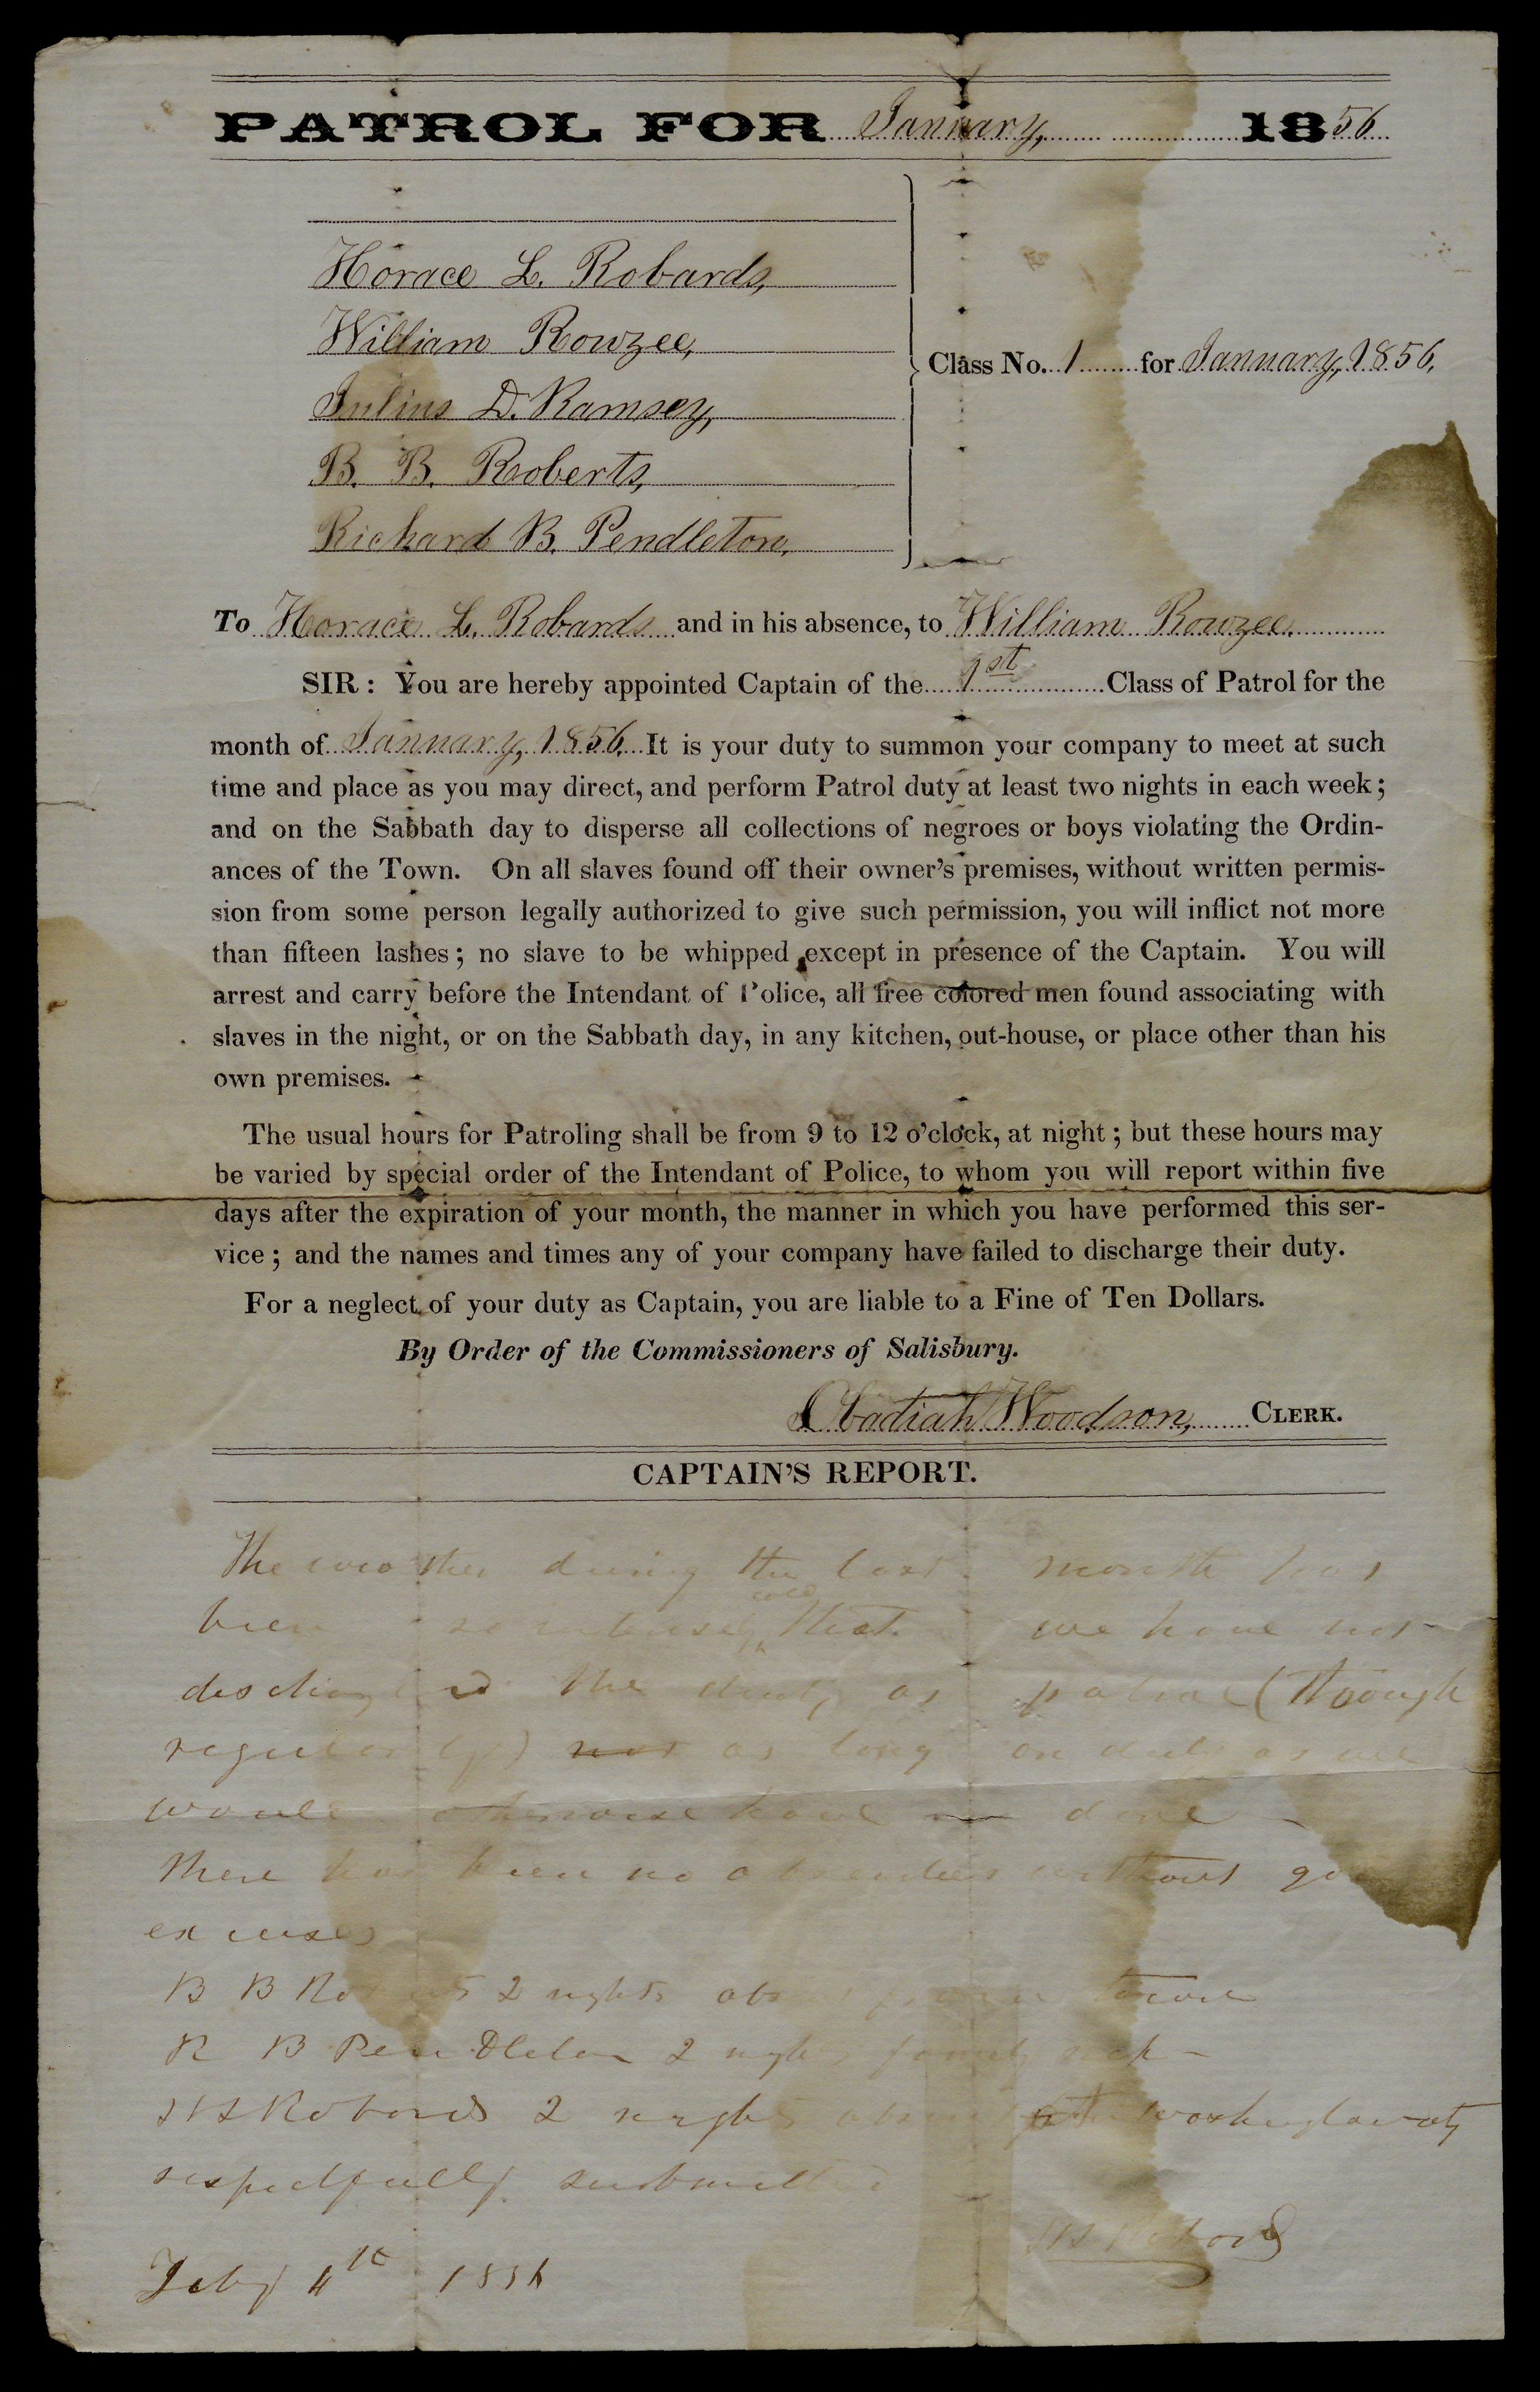 PATROL FOR January, 1856
Horace L. Robards,
William Rowzee,
Julius D. Ramsey,
B. B. Roberts,
Richard B. Pendleton,
Class No. 1 for January, 1856.
To Horace L. Robards and in his absence, to William Rowzee.
SIR: You are hereby appointed Captain of the 1st Class of Patrol for the
month of January, 1856. It is your duty to summon your company to meet at such
time and place as you may direct, and perform Patrol duty at least two nights in each week;
and on the Sabbath day to disperse all collections of negroes or boys violating the Ordin-
ances of the Town. On all slaves found off their owner's premises, without written permis-
sion from some person legally authorized to give such permission, you will inflict not more
than fifteen lashes; no slave to be whipped except in presence of the Captain. You will
arrest and carry before the Intendant of Police, all free colored men found associating with
slaves in the night, or on the Sabbath day, in any kitchen, out-house, or place other than his
own premises.
The usual hours for Patroling shall be from 9 to 12 o'clock, at night; but these hours may
be varied by special order of the Intendant of Police, to whom you will report within five
days after the expiration of your month, the manner in which you have performed this ser-
vice; and the names and times any of your company have failed to discharge their duty.
For a neglect of your duty as Captain, you are liable to a Fine of Ten Dollars.
By Order of the Commissioners of Salisbury.
Obadiah Woodson, CLERK.
CAPTAIN'S REPORT.
The weather during the last month has
been so intensely cold that we have not
discharged the duty as patrol (though
regularly) not as long on duty as we
would otherwise have done
There has been no absentees without good
excuses
B B Roberts 2 nights absent from town
R B Pendleton 2 nights family sick -
H L Robards 2 nights absent Washington city
respectfully submitted
H L Robards
Feby 4th 1856